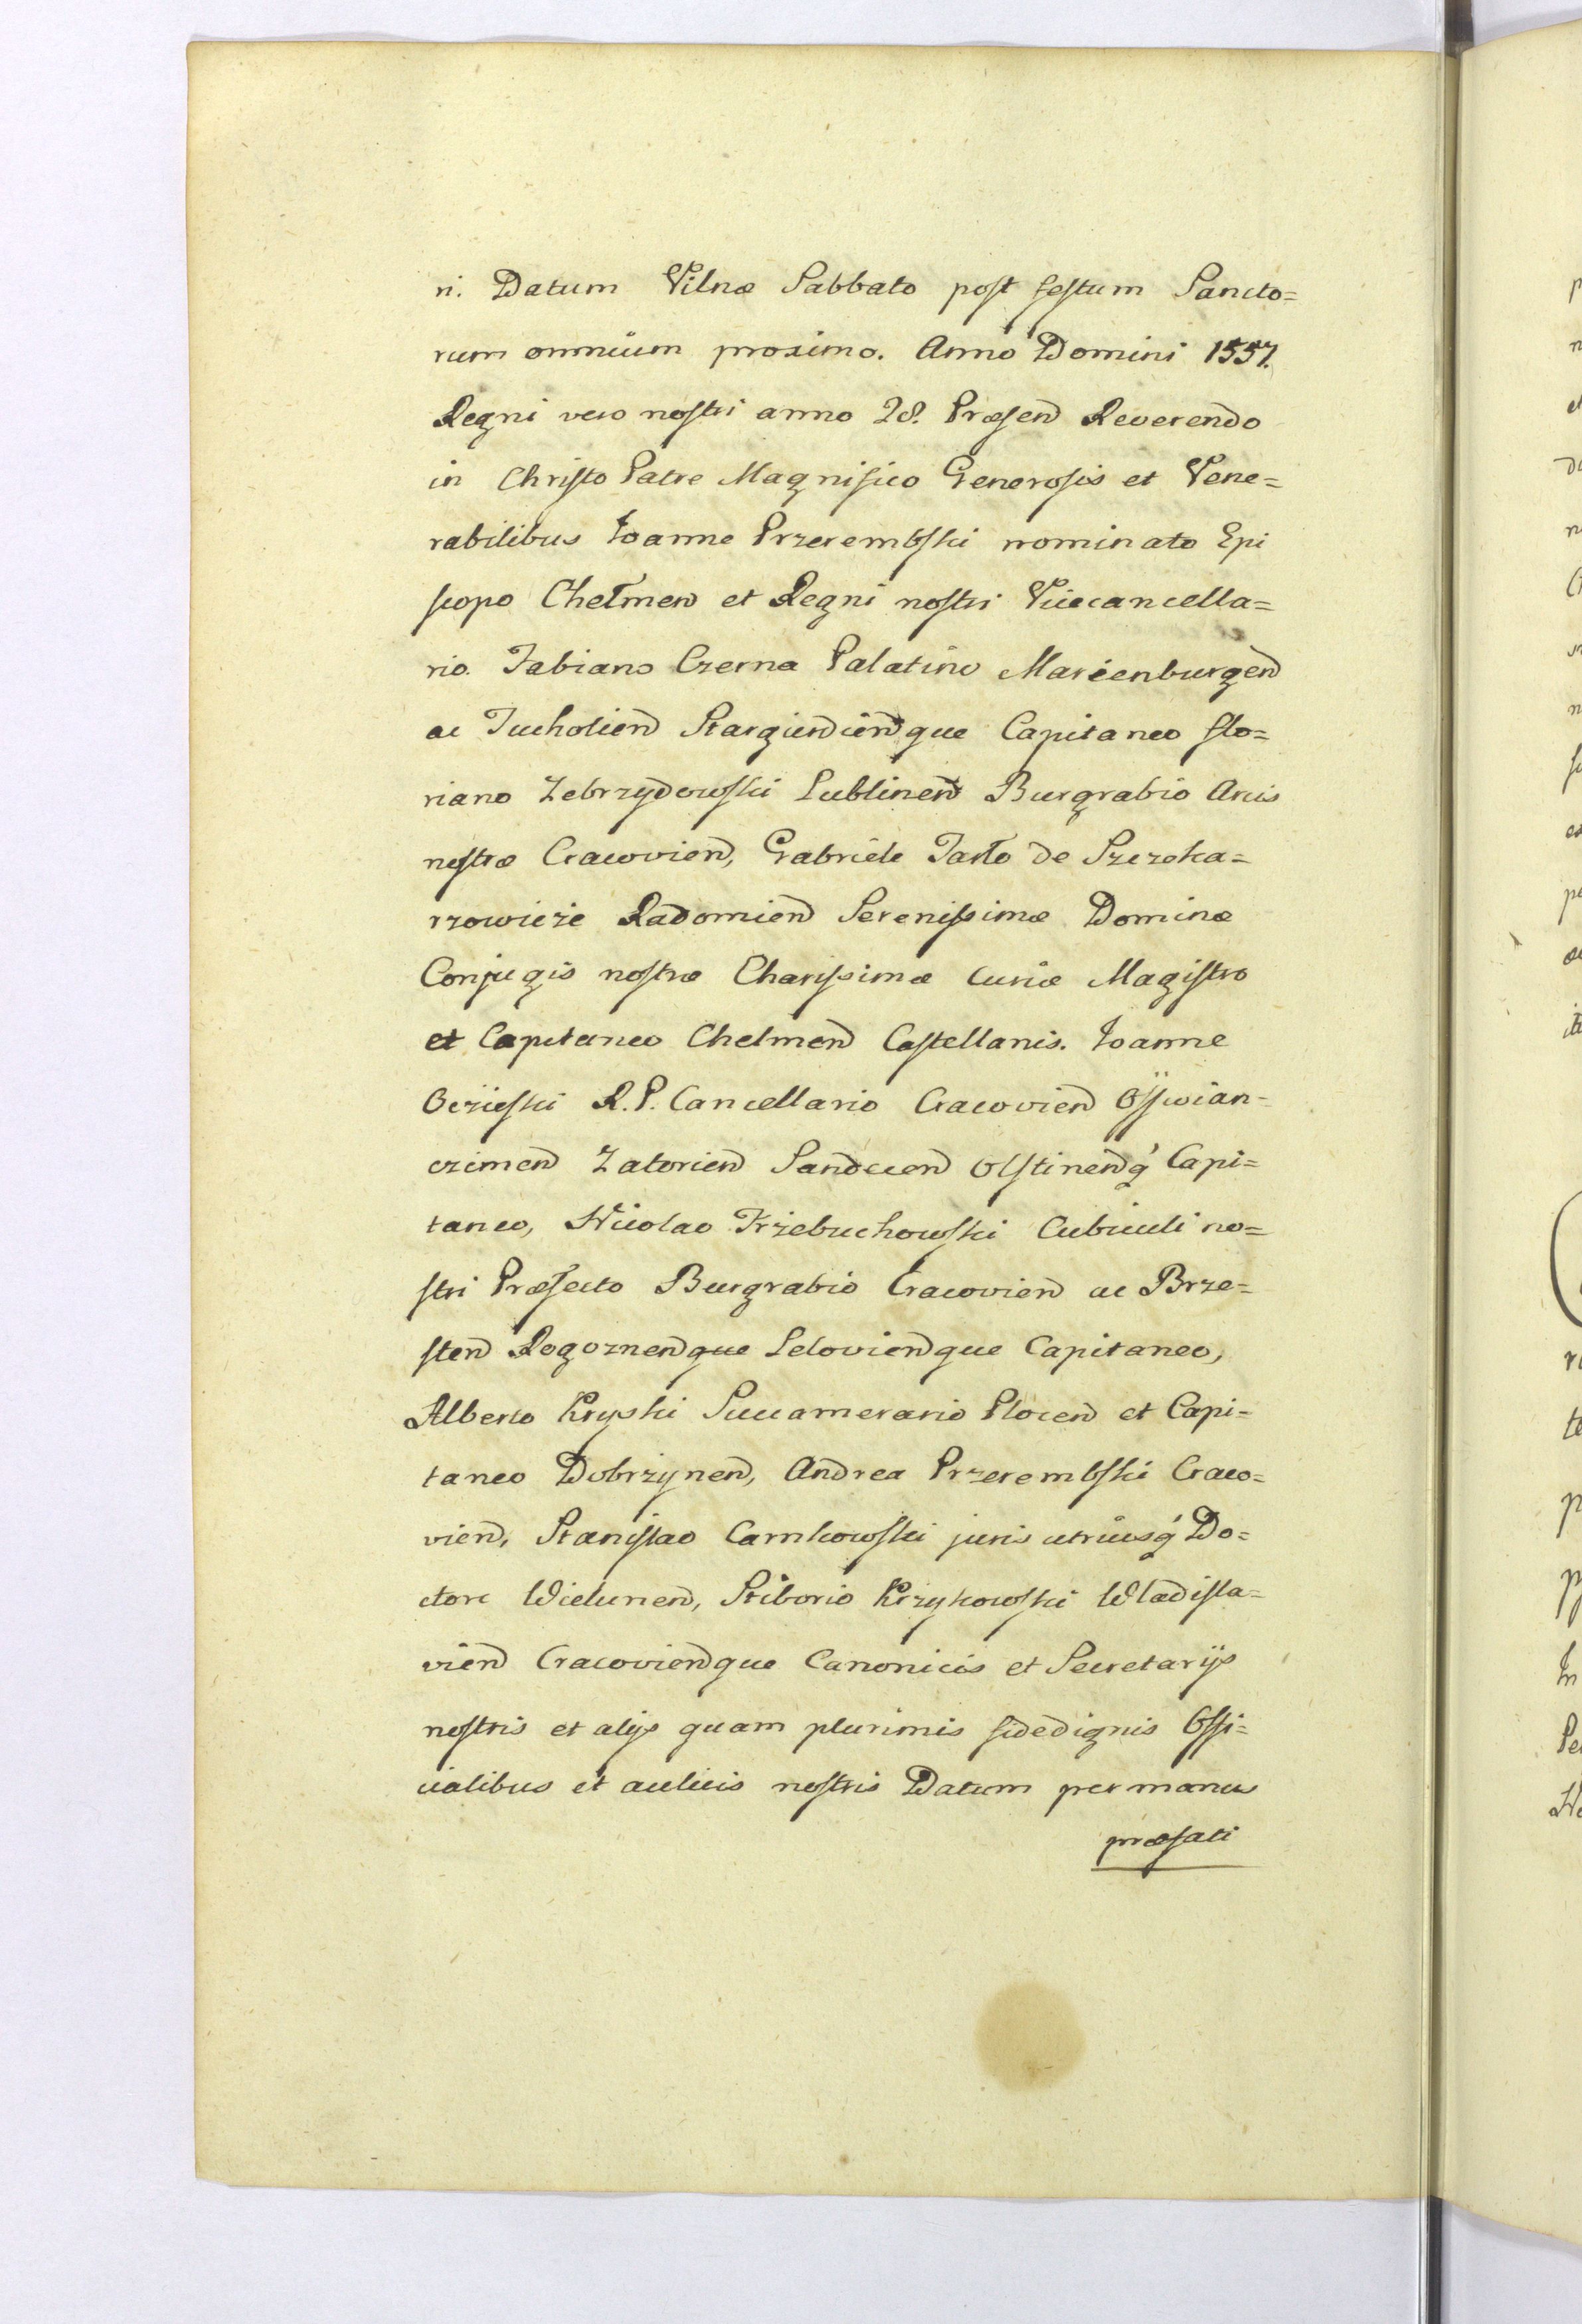 n. Datum Vilnæ Sabbato post festum Sancto=
rum omnium proximo. Anno Domini 1557.
Regni vero nostri anno 28. Præsen͠ Reverendo
in Christo Patre Magnifico Generosis et Vene=
rabilibus Joanne Przerembski nominato Epi
scopo Chełmen͠ et Regni nostri Vicecancella=
rio. Fabiano Czema Palatino Marienburgen͠
ac Tucholien͠ Stargieducen͠que Capitaneo flo=
riano Zebrzydowski Lublinen͠ Burgrabio Arcis
nostræ Cracovien͠, Gabriele Tarło de Szczeka=
rzowicze Radomien͠ Serenissimæ Dominæ
Conjugis nostræ Charissimæ Curiæ Magistro
et Capitaneo Chelmen͠ Castellanis. Joanne
Oczieski R. P. Cancellario Cracovien͠ Osswian=
czimen͠ Zatorien͠ Sandecen͠ Olstinen͠q́ Capi=
taneo, Nicolao Trzebuchowski Cubiculi no=
stri Præfecto Burgrabio Cracovien͠ ac Brze=
sten͠ Rogoznen͠que Lelovien͠que Capitaneo,
Alberto Kryski Succamerario Plocen͠ et Capi=
taneo Dobrzynen͠, Andrea Przerembski Craco=
vien͠, Stanislao Carnkowski juris utriusq́ Do=
ctore Wielunen͠, Stiborio Krzykowski Wladisla=
vien͠ Cracovien͠que Canonicis et Secretarijs
nostris et alijs quam plurimis fidedignis Offi=
cialibus et aulicis nostris Datum per manus
præfati